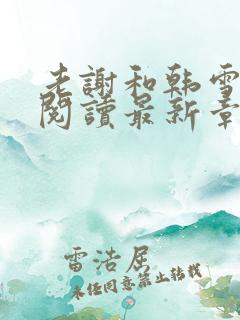 老謝和韩雪
閱讀最新章
雷浩居
未经同意禁止转载